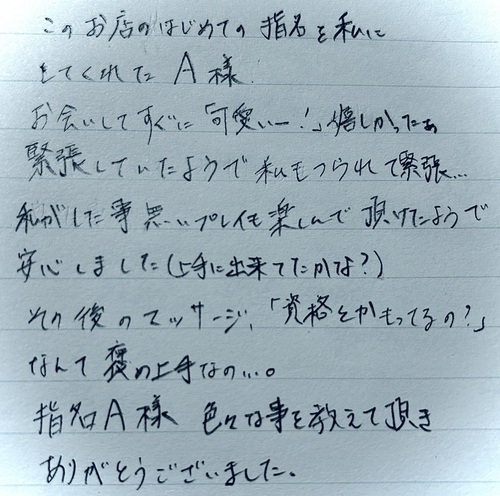 このお店のはじめての指名を私に
してくれたA様
お会いしてすぐに「可愛いー!」嬉しかったぁ
緊張していたようで私もつられて緊張...
私がした事無いプレイも楽しんで頂けたようで
安心しました(上手に出来てたかな?)
その後のマッサージ、「資格とかもってるの?」
なんて褒め上手なの...。
指名A様 色々な事を教えて頂き
ありがとうございました。